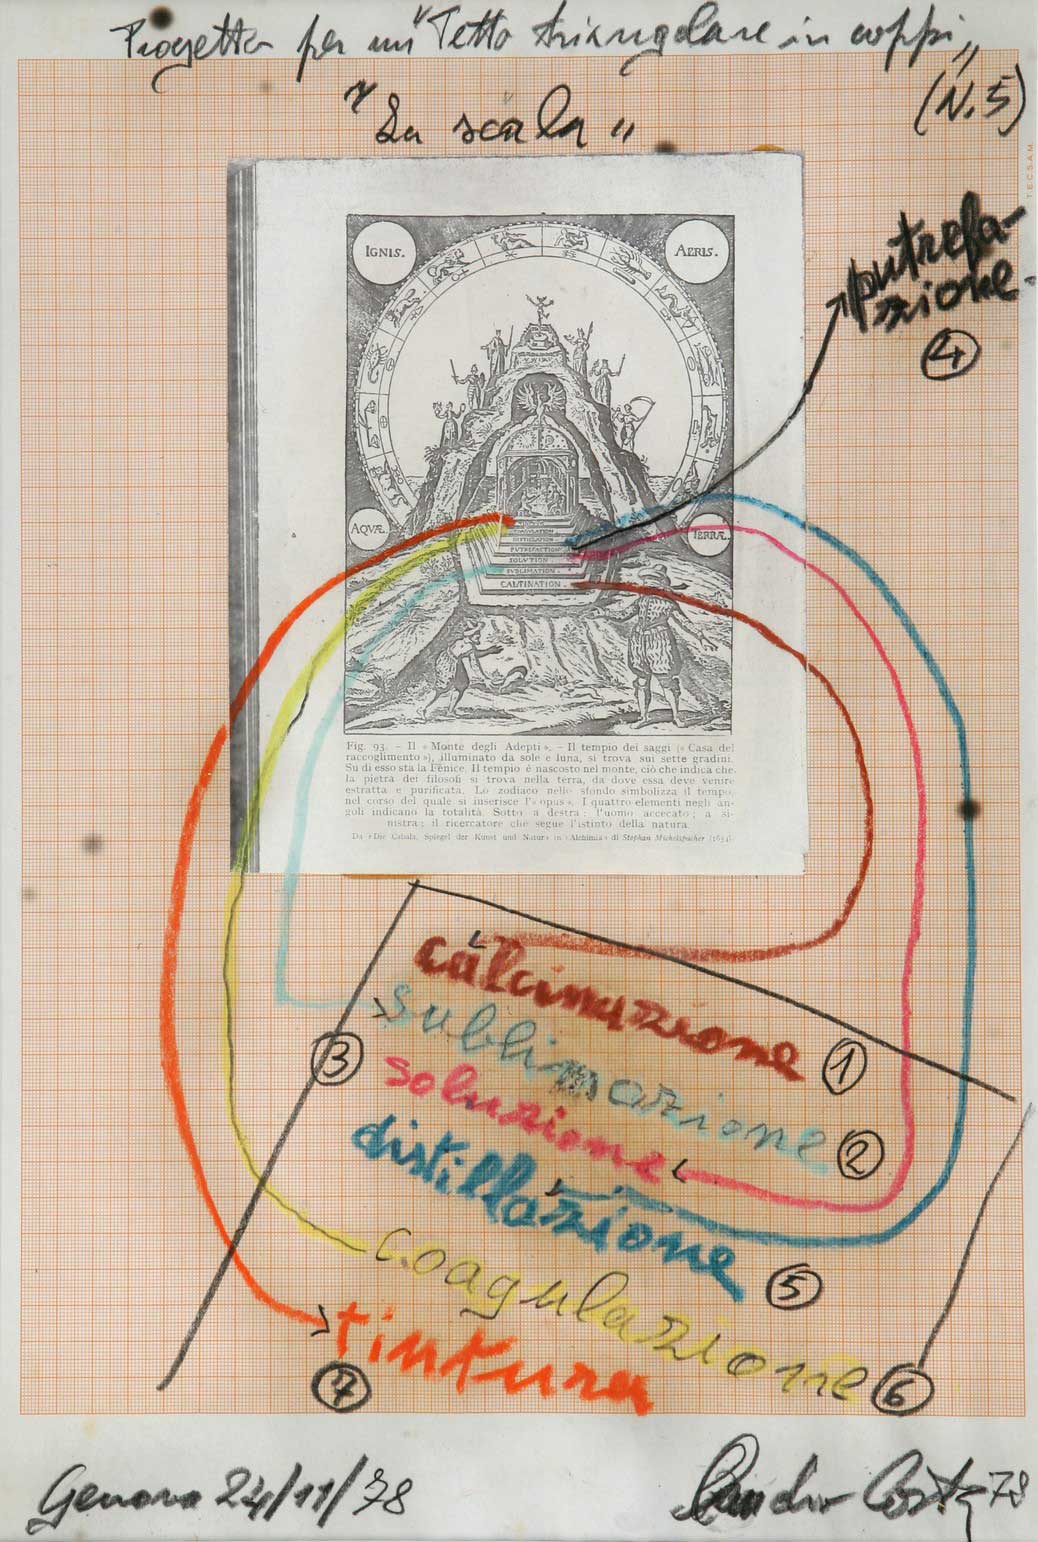 Progetto per un "Tetto triangolare in coppi"
(N. 5)
"La scala"
TECSAM
putrefa-
zione
4
IGNIS.
AERIS.
AQUÆ.
TERRÆ.
DISTILLATION
PUTREFACTION
SOLUTION
SUBLIMATION.
CALTINATION.
Fig. 93. – Il «Monte degli Adepti». – Il tempio dei saggi («Casa del
raccoglimento»), illuminato da sole e luna, si trova sui sette gradini.
Su di esso sta la Fenice. Il tempio è nascosto nel monte, ciò che indica che
la pietra dei filosofi si trova nella terra, da dove essa deve venire
estratta e purificata. Lo zodiaco nello sfondo simbolizza il tempo
nel corso del quale si inserisce l'«opus». I quattro elementi negli an-
goli indicano la totalità. Sotto a destra: l'uomo accecato; a si-
nistra: il ricercatore che segue l'istinto della natura.
Da «Die Cabala, Spiegel der Kunst und Natur» in «Alchimia» di Stephan Michelspacher (1654).
calcinazione 1
3
sublimazione 2
soluzione
distillazione 5
coagulazione 6
tintura
7
Genova 24/11/78
Claudio Costa 78